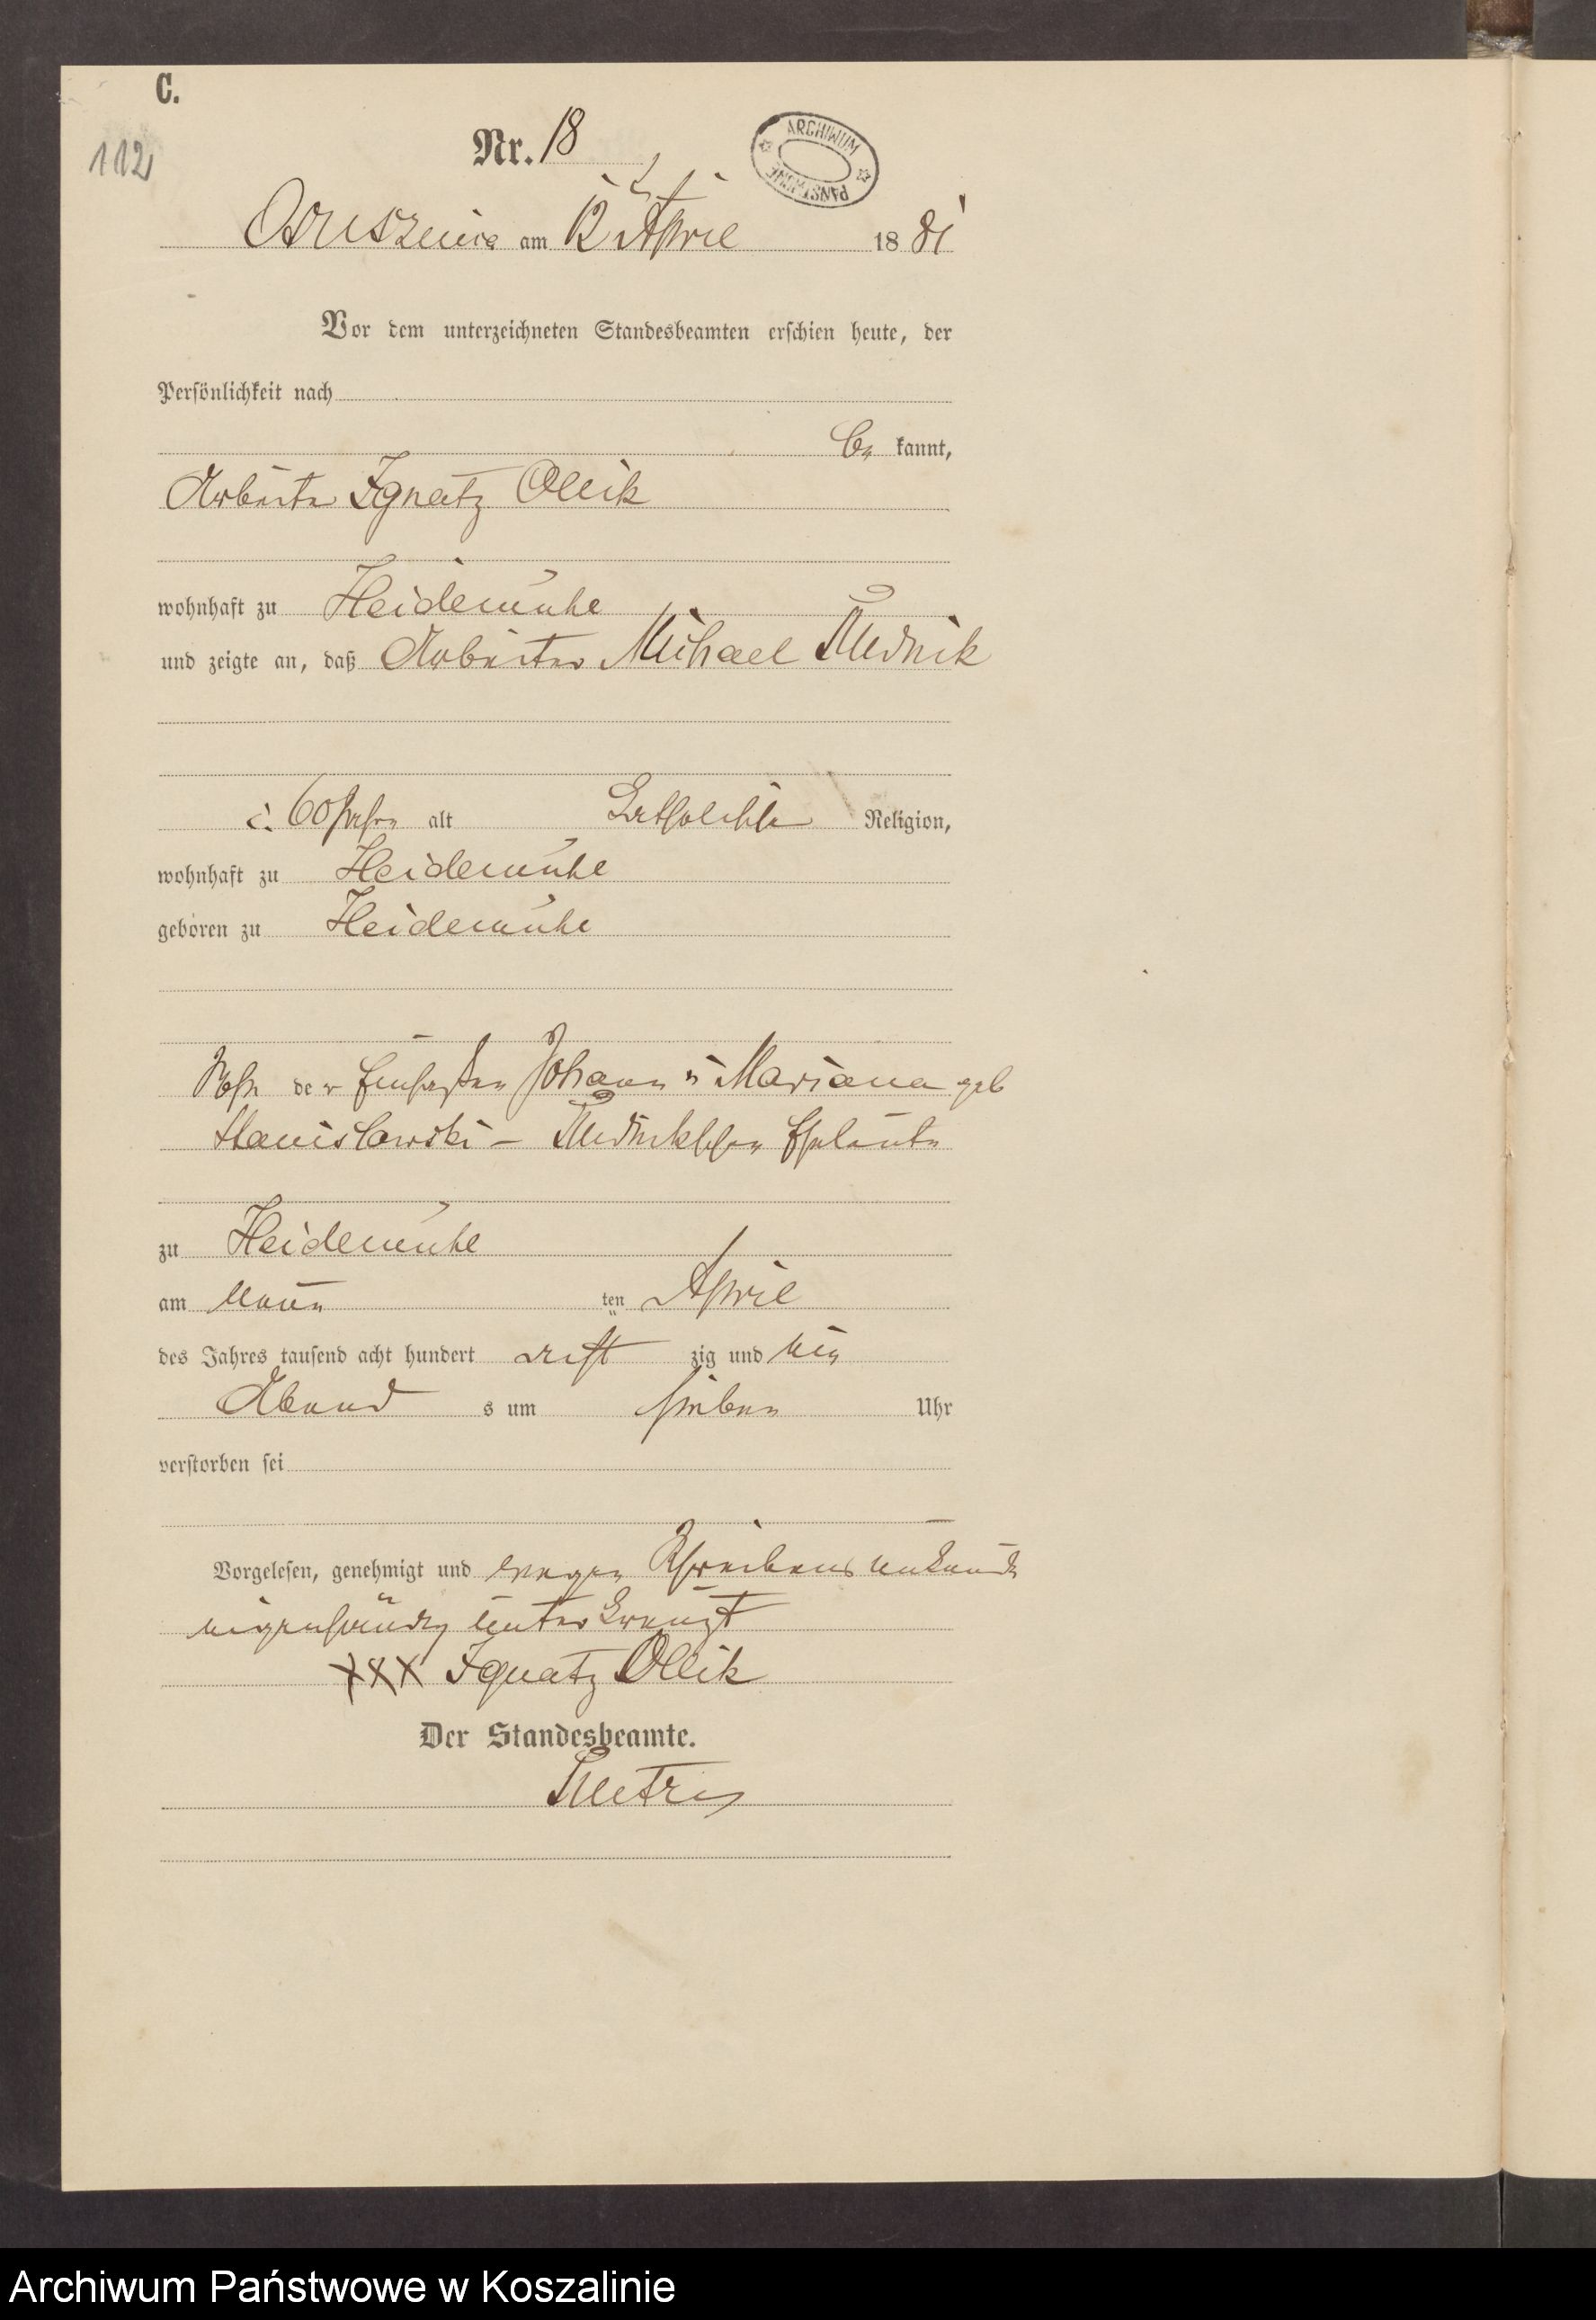 C.
112
Nr. 18
ARCHIWUM PAŃSTWOWE
Osuszniça am 12 April 1881
Vor dem unterzeichneten Standesbeamten erschien heute, der
Persönlichkeit nach
be kannt,
Arbeiter Ignatz Ollik
wohnhaft zu Heidemühle
und zeigte an, daß Arbeiter Michael Rudnik
c. 60 Jahre alt katholischer Religion,
wohnhaft zu Heidemühle
geboren zu Heidemühle
Sohn der Einsassen Johann u Mariana geb
Stanislowski – Rudnikschen Eheleute
zu Heidemühle
am neun ten April
des Jahres tausend acht hundert acht zig und ein
Abend s um sieben Uhr
verstorben sei
Vorgelesen, genehmigt und wegen Schreibens unkunde
eigenhändig unterkreuzt
xxx Ignatz Ollik
Der Standesbeamte.
Archiwum Państwowe w Koszalinie